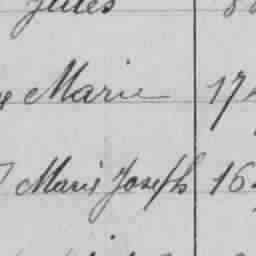 Jules
Marie 17
Marie Joseph 16